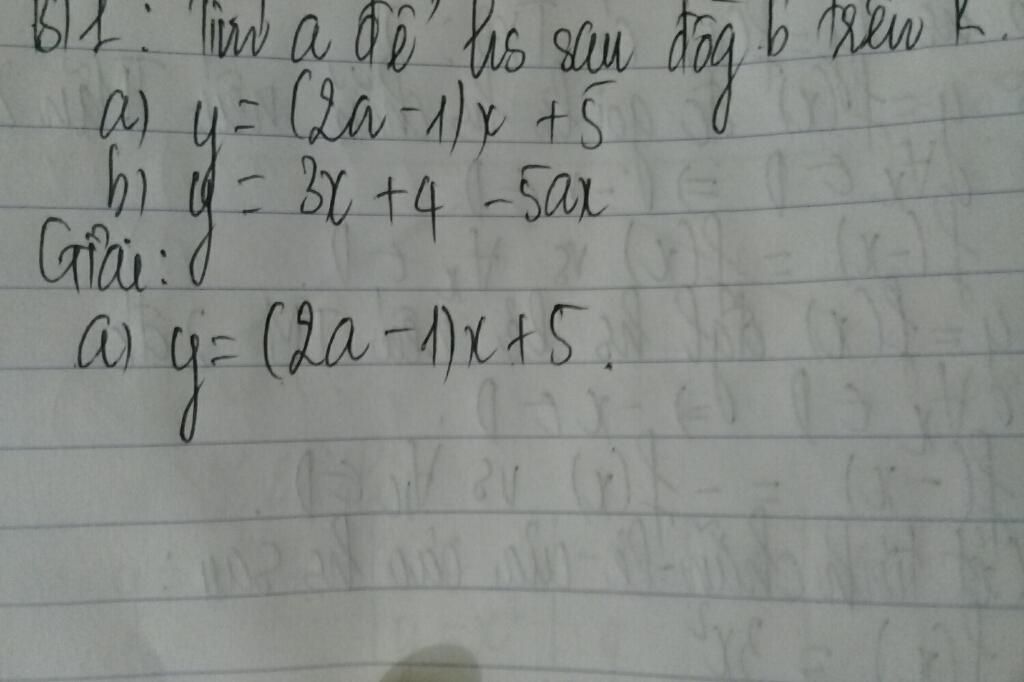 B1: Tìm a để hs sau đōg b trên R.
a) y = (2a - 1)x + 5
b) y = 3x + 4 - 5ax
Giải:
a) y = (2a - 1)x + 5.